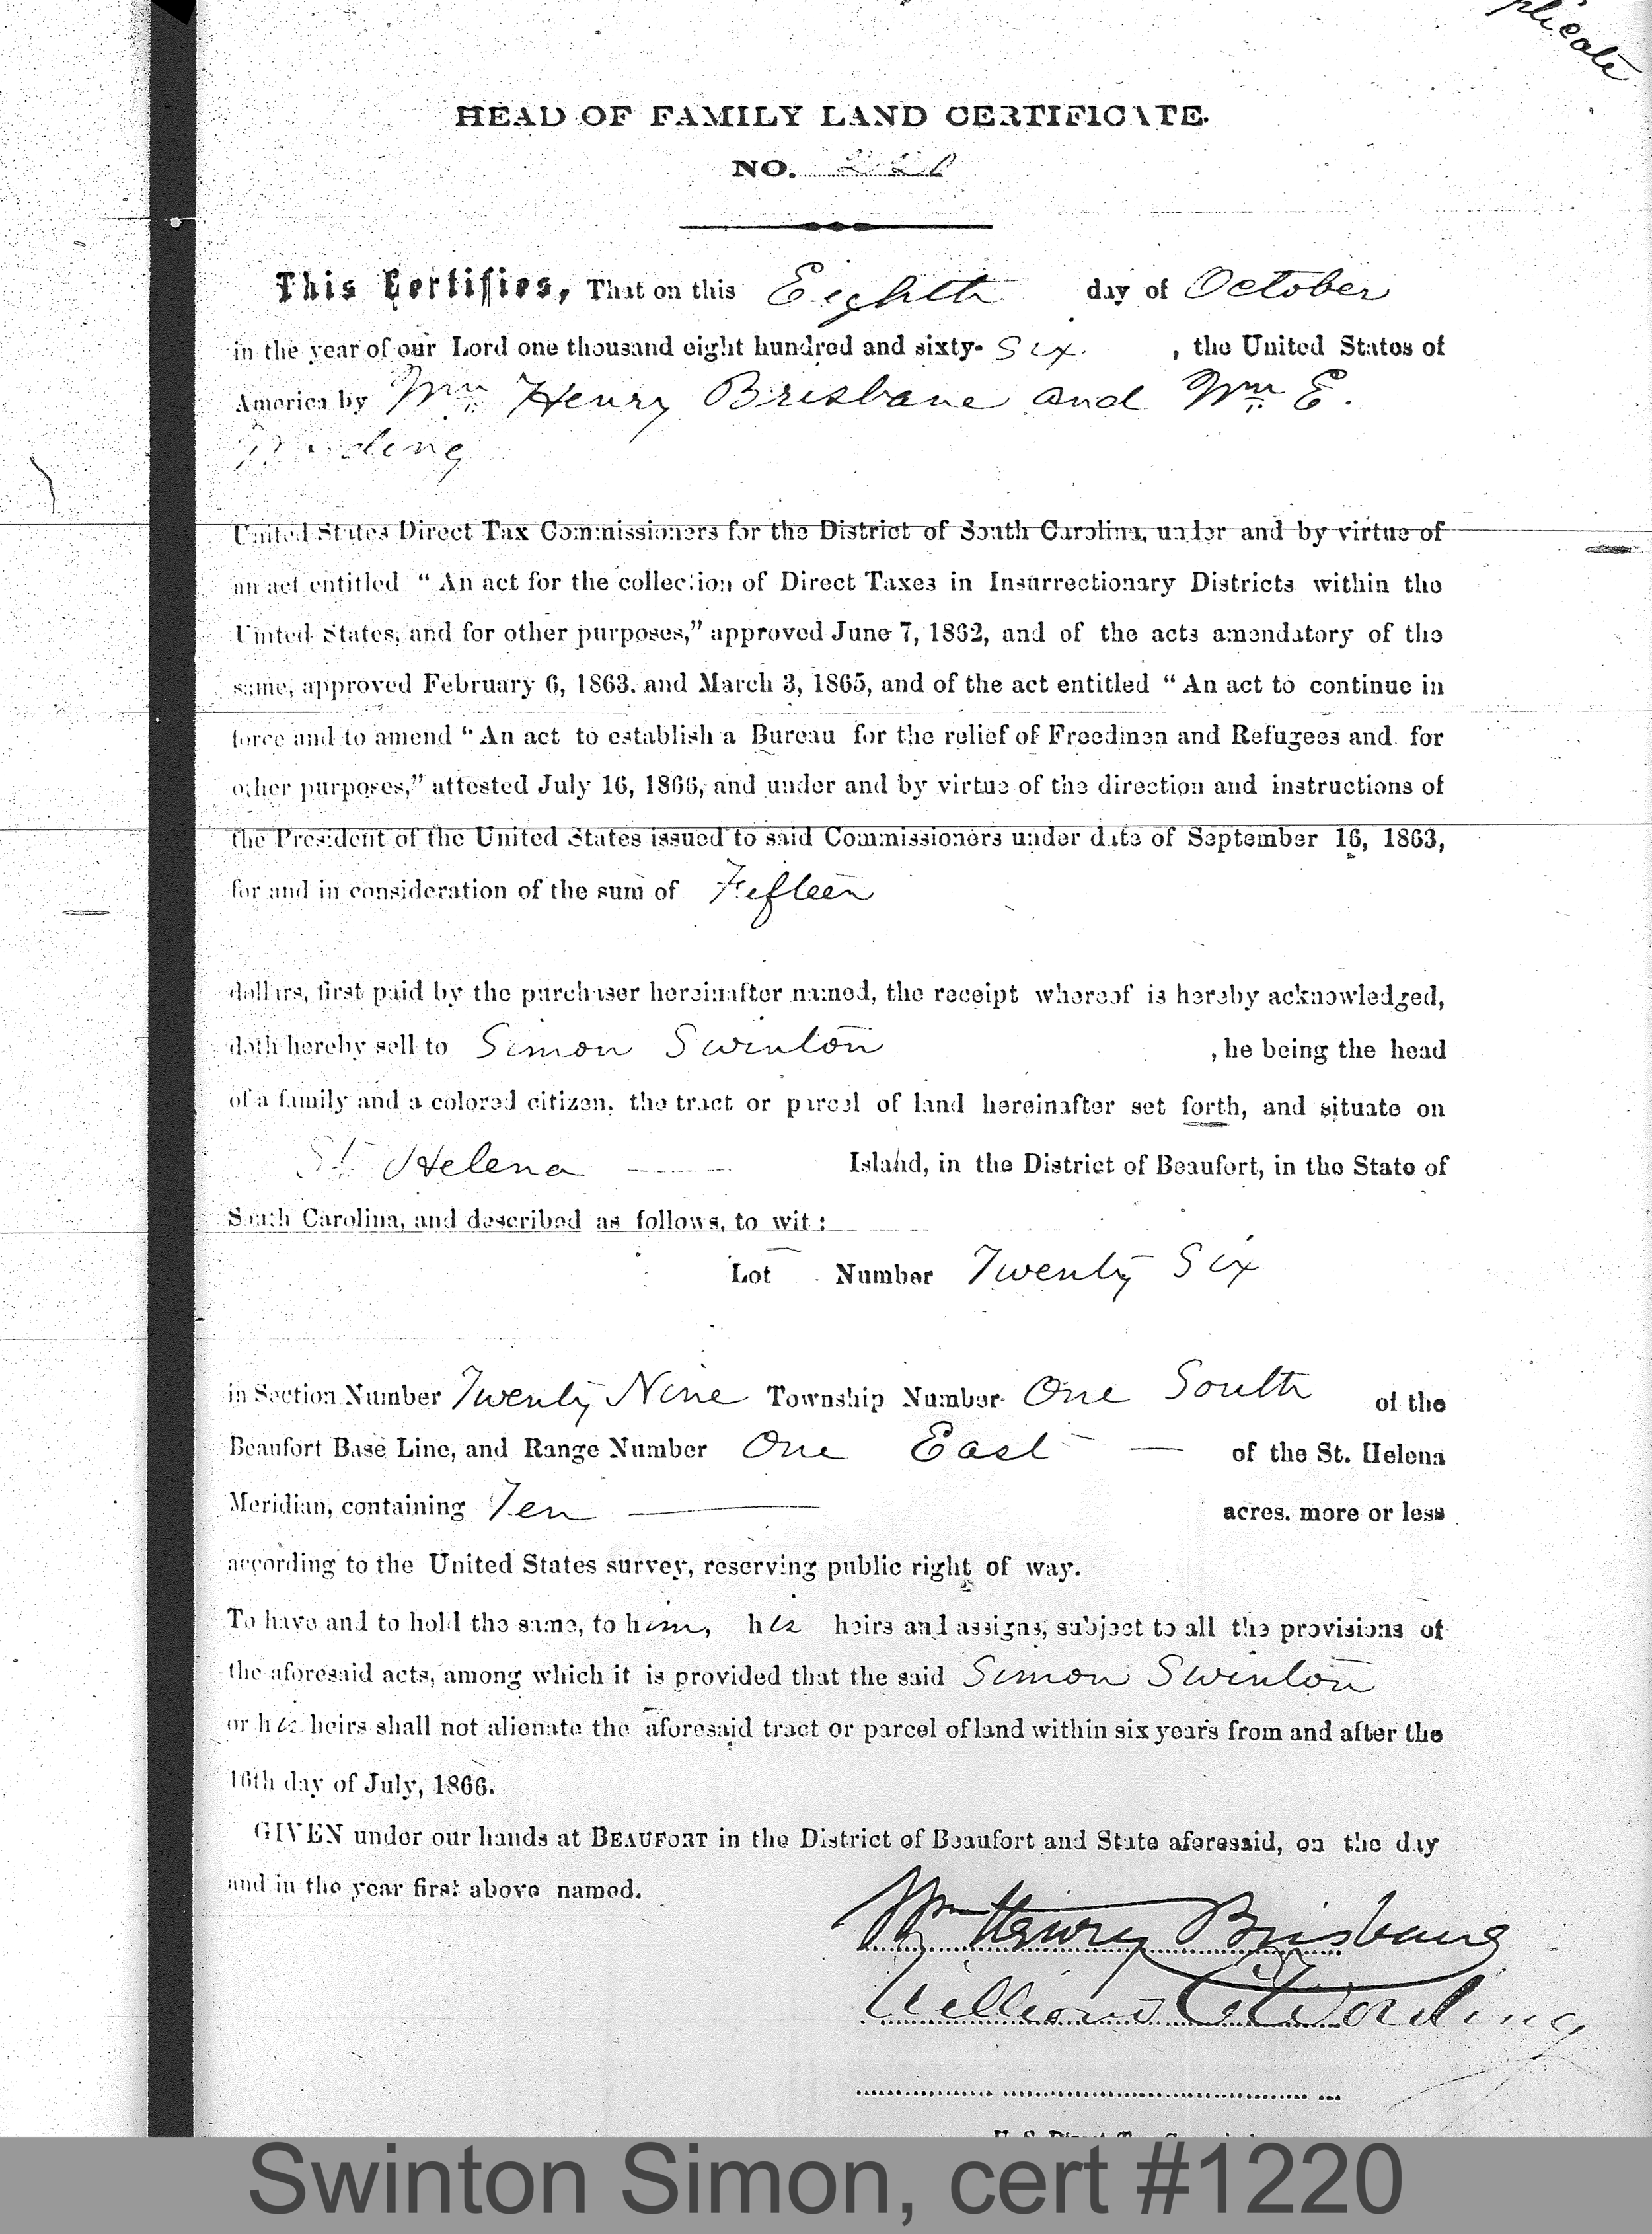 HEAD OF FAMILY LAND CERTIFICATE.
NO.
This Certifies, That on this Eighth day of October
in the year of our Lord one thousand eight hundred and sixty- Six , the United States of
America by Wm Henry Brisbane and Wm E.
Wording
United States Direct Tax Commissioners for the District of South Carolina, under and by virtue of
an act entitled “An act for the collection of Direct Taxes in Insurrectionary Districts within the
United States, and for other purposes,” approved June 7, 1862, and of the acts amendatory of the
same, approved February 6, 1863. and March 3, 1865, and of the act entitled “An act to continue in
force and to amend “An act to establish a Bureau for the relief of Freedmen and Refugees and for
other purposes,” attested July 16, 1866, and under and by virtue of the direction and instructions of
the President of the United States issued to said Commissioners under date of September 16, 1863,
for and in consideration of the sum of Fifteen
dollars, first paid by the purchaser hereinafter named, the receipt whereof is hereby acknowledged,
doth hereby sell to Simon Swinton , he being the head
of a family and a colored citizen, the tract or parcel of land hereinafter set forth, and situate on
St. Helena Island, in the District of Beaufort, in the State of
South Carolina, and described as follows, to wit:
Lot Number Twenty Six
in Section Number Twenty Nine Township Number One South of the
Beaufort Base Line, and Range Number One East — of the St. Helena
Meridian, containing Ten — acres. more or less
according to the United States survey, reserving public right of way.
To have and to hold the same, to him, his heirs and assigns, subject to all the provisions of
the aforesaid acts, among which it is provided that the said Simon Swinton
or his heirs shall not alienate the aforesaid tract or parcel of land within six years from and after the
16th day of July, 1866.
GIVEN under our hands at BEAUFORT in the District of Beaufort and State aforesaid, on the day
and in the year first above named.
Wm Henry Brisbane
William E Wording
Swinton Simon, cert #1220